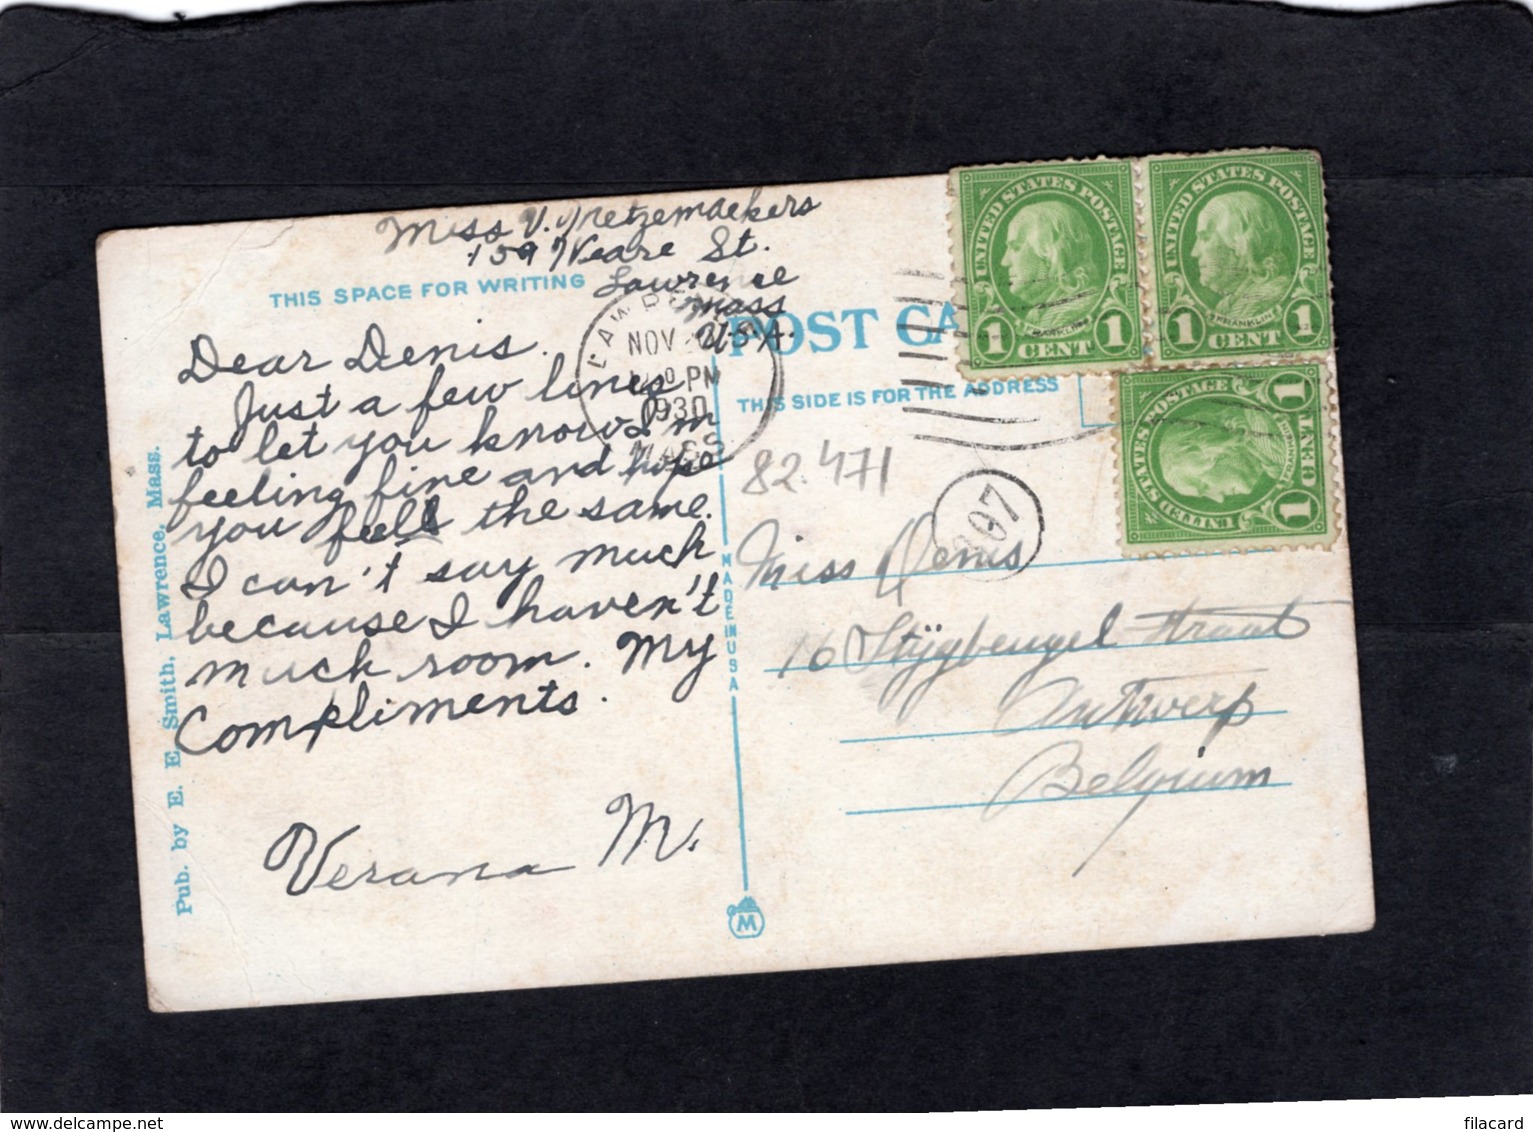 Miss V. Metzemaekers
159 Weare St.
Lawrence
Mass
U.S.A.
THIS SPACE FOR WRITING
Dear Denis.
Just a few lines
to let you know I'm
feeling fine and hope
you feel the same.
I can't say much
because I haven't
much room. My
Compliments.
Verana M.
Pub. by E. E. Smith, Lawrence, Mass.
LAWRENCE
NOV
PM
1930
MASS
MADE IN USA
M
POST CA
THIS SIDE IS FOR THE ADDRESS
UNITED STATES POSTAGE
FRANKLIN
1 CENT 1
UNITED STATES POSTAGE
FRANKLIN
1 CENT 1
UNITED STATES POSTAGE
1 CENT 1
82.471
Miss Denis
16 Stijgbeugel straat
Antwerp
Belgium
filacard